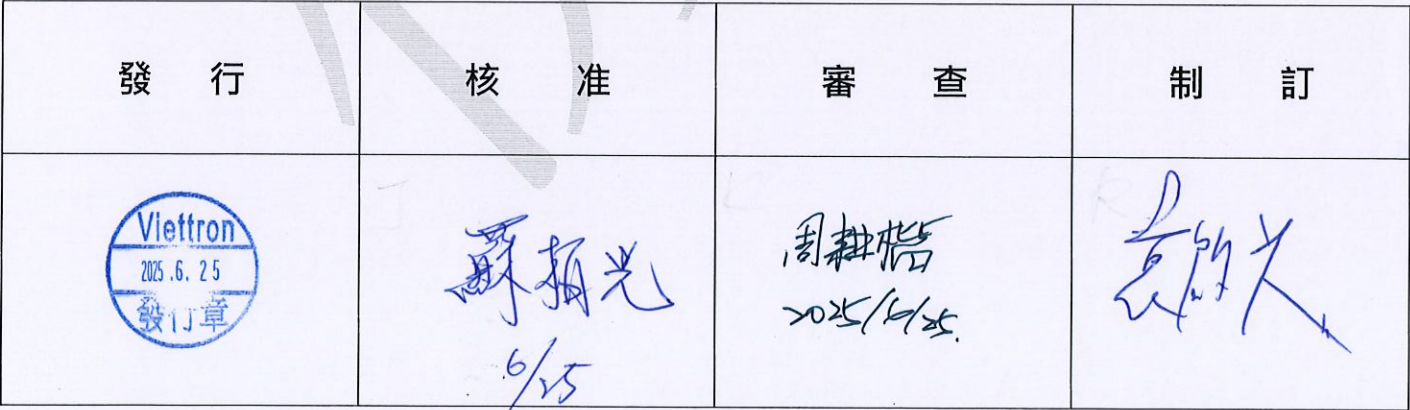 發 行 核 准 審 查 制 訂
Viettron
2025.6.25
發行章
蘇
光
6/25
周耕
2025/6/25.
袁啟